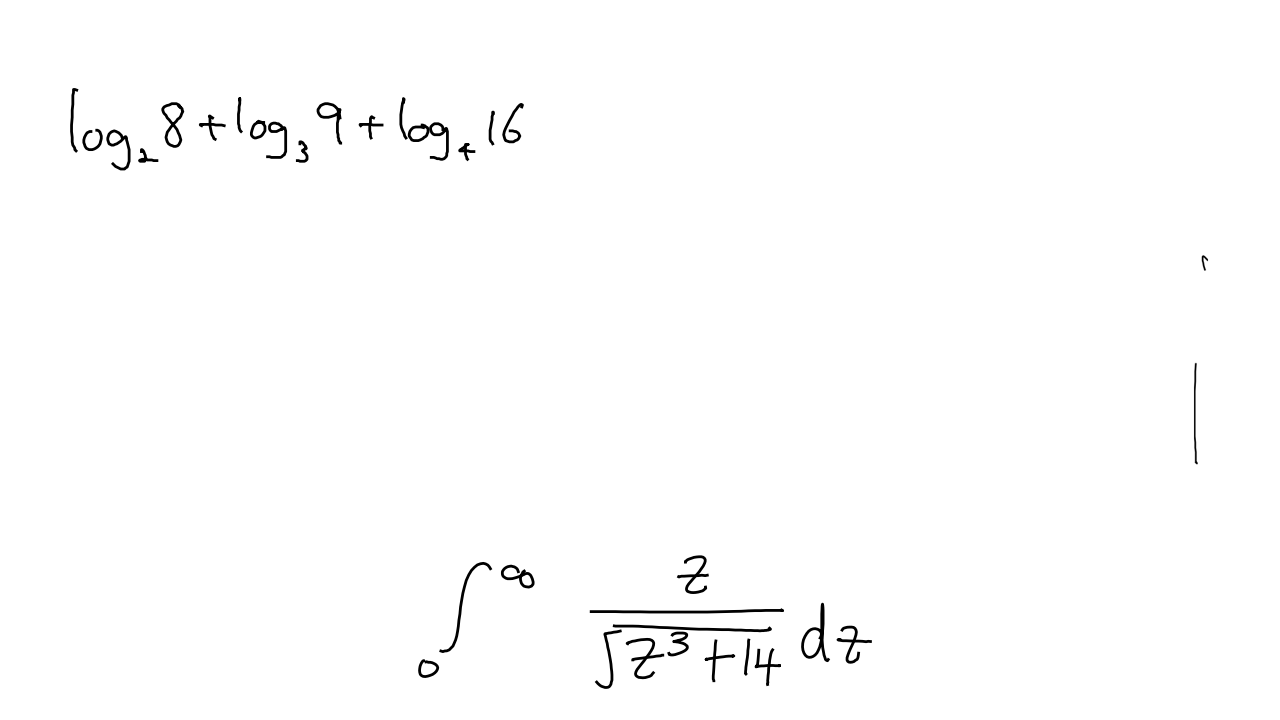 log₂ 8 + log₃ 9 + log₄ 16
∫₀^∞ z / √(z³ + 14) dz